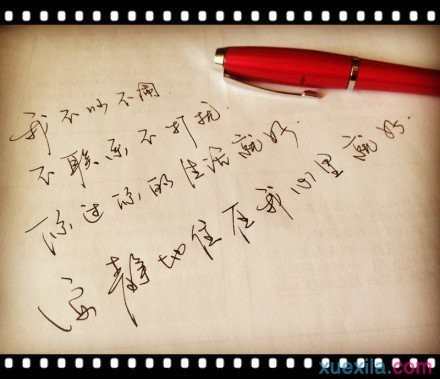 我不吵不闹
不联系不打扰.
你过你的生活就好.
安静地住在我心里就好.
xuexila.com